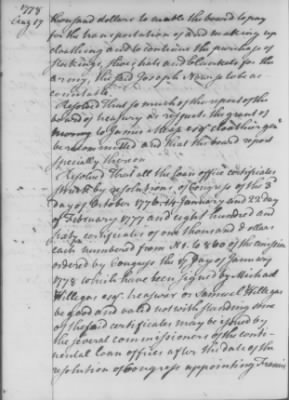 1778
Aug 17
thousand dollars to enable the board to pay
for the transportation of and making up
cloathing and to continue the purchase of
stockings, shoes, hats and blankets for the
army, the said Joseph Nourse to be ac
countable.
Resolved That so much of the report of the
board of treasury as respects the grant of
money to James Mease esqr cloathier genl
be recommitted and that the board report
specially thereon
Resolved That all the loan office certificates
struck by resolutions of Congress of the 3d
day of October 1776. 14 January and 22d day
of February 1777 and eight hundred and
sixty certificates of one thousand dollars
each numbered from No. 1 to 860 of the emission
ordered by Congress the 17 Day of January
1778 which have been signed by Michael
Hillegas esqr. treasurer or Samuel Hillegas
be good and valid notwithstanding some
of the said certificates may be issued by
the several commissioners of the conti-
nental loan offices after the date of the
resolution of Congress appointing Francis